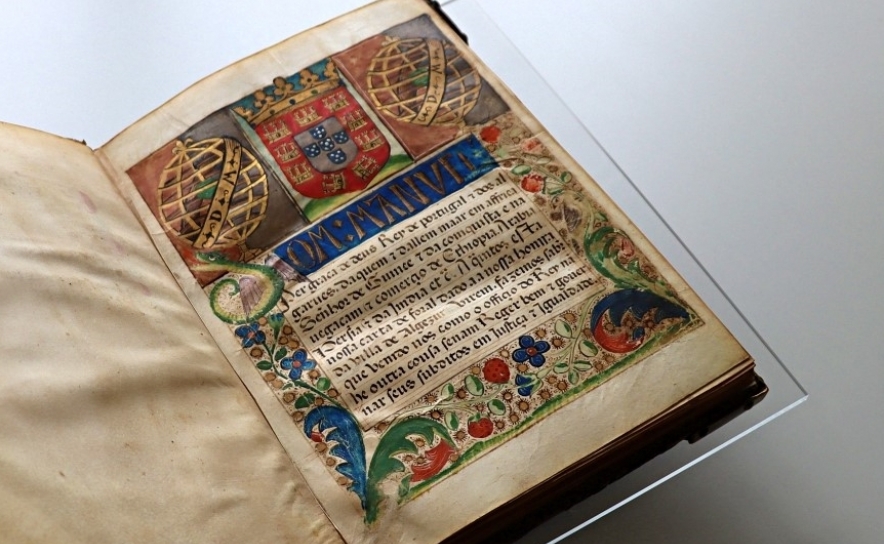 DOM: MANVEL
Per graca de deus Rey de portugal ⁊ dos al
garues, daquem ⁊ dallem maar em affrica
Senhor de Guinee ⁊ da comquista ⁊ na
uegaçam ⁊ comercio de Ethiopia Arabia
Persia ⁊ da India etc. A quãtos esta
nossa carta de foral dado aa nossa
da villa de aljezur virem. fazemos
que beendo nos como o officio do Rey nã
he outra cousa senam Reger bem ⁊ gouer
nar seus subditos em Justica ⁊ Igualdade